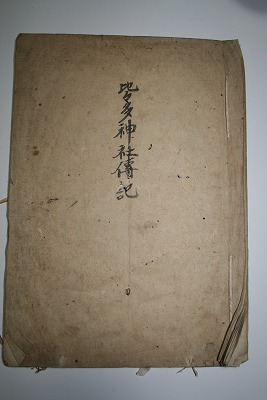 毘多神社傳記